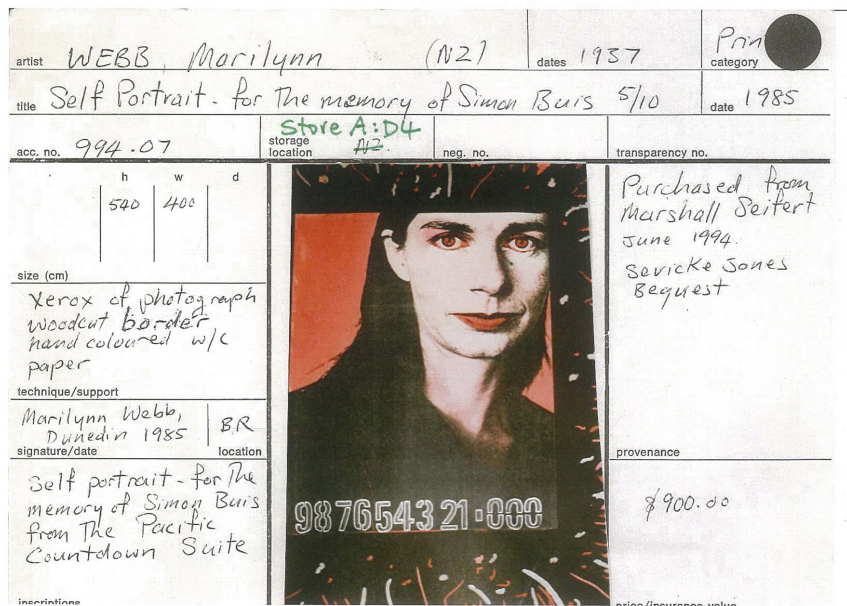 artist WEBB, Marilynn (NZ) dates 1937 Prin category
title Self Portrait - for The memory of Simon Buis 5/10 date 1985
acc. no. 994.07 storage location Store A:D4 NZ neg. no. transparency no.
h w d
540 400
size (cm)
Xerox of photograph
woodcut border
hand coloured w/c
paper
technique/support
Marilynn Webb,
Dunedin 1985
signature/date
B.R
location
Self portrait - for The
memory of Simon Buis
from The Pacific
Countdown Suite
inscriptions
987654321·000
Purchased from
Marshall Seifert
June 1994.
Sevicke Jones
Bequest
provenance
$900.00
price/insurance value